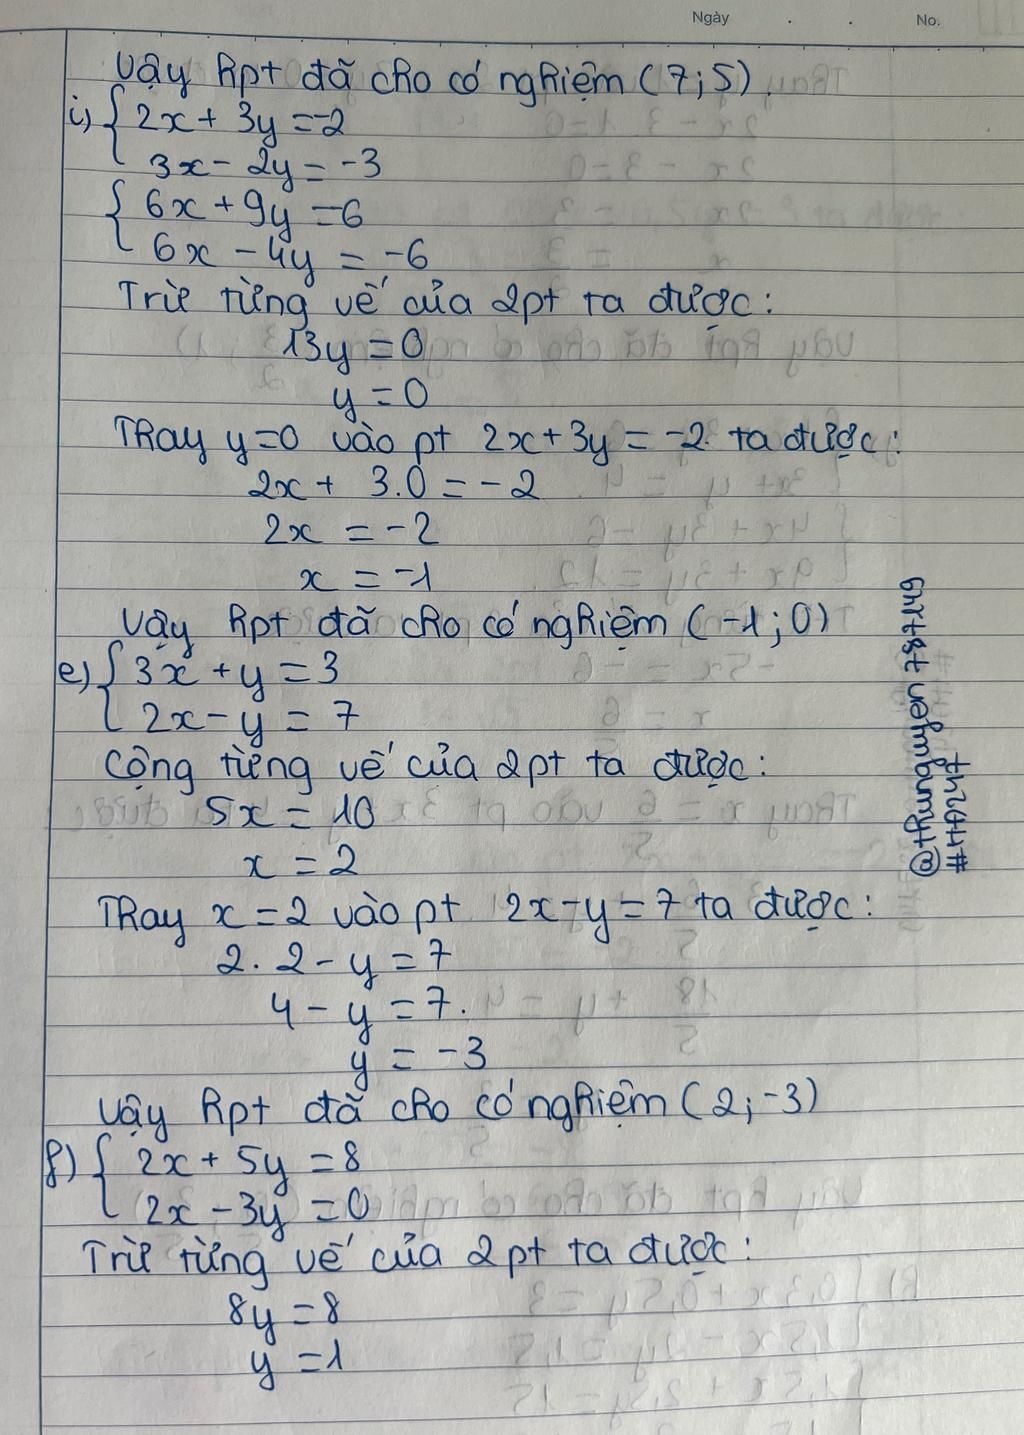 Ngày . . No.
Vậy hpt đã cho có nghiệm (7;5).
i) { 2x + 3y = -2
3x - 2y = -3
{ 6x + 9y = -6
6x - 4y = -6
Trừ từng vế của 2pt ta được:
13y = 0
y = 0
Thay y=0 vào pt 2x + 3y = -2 ta được:
2x + 3.0 = -2
2x = -2
x = -1
Vậy hpt đã cho có nghiệm (-1;0)
e) { 3x + y = 3
2x - y = 7
Cộng từng vế của 2pt ta được:
5x = 10
x = 2
Thay x = 2 vào pt 2x - y = 7 ta được:
2. 2 - y = 7
4 - y = 7.
y = -3
Vậy hpt đã cho có nghiệm (2;-3)
f) { 2x + 5y = 8
2x - 3y = 0
Trừ từng vế của 2pt ta được:
8y = 8
y = 1
#HD247